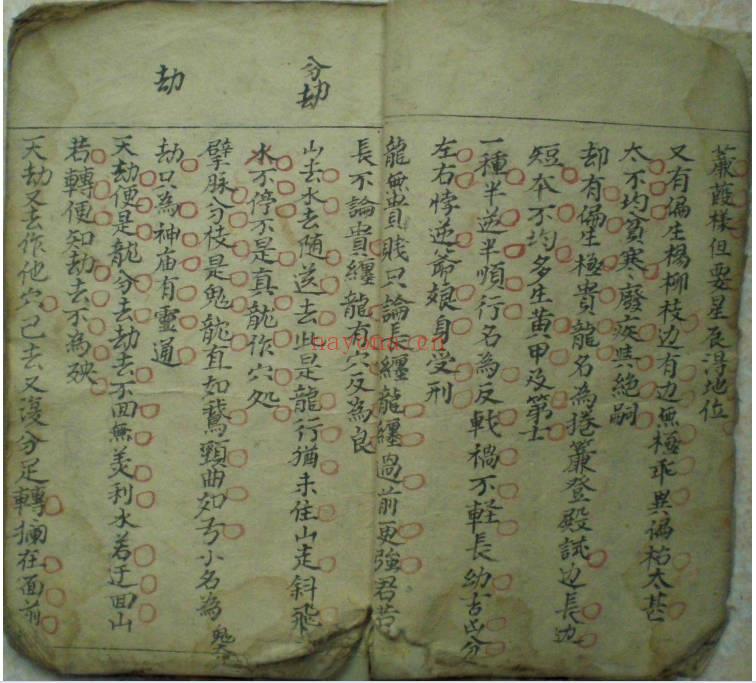 蕀薐樣但要星辰得地位
又有偏生楊柳枝边有边無極乖異偏枯太甚
太不均貧寒廢疾具絶嗣
却有偏生極貴龍名為捲簾登殿試边長边
短本不均多生黄甲及第士
一種半逆半順行名為反戟禍不軽長幼吉凶分
左右悖逆爺娘自受刑
龍無貴賎只論長纏龍纏過前更強君若
長不論貴纏龍有穴反為良
山去水去随送去此是龍行猶未住山走斜飛
水不停不是真龍作穴処
分劫
擘脉分枝是鬼龍直如鵞頸曲如弓小名為
劫只為神庙有靈通
劫
天劫便是龍分去劫去不回無美利水若迂回山
若轉便知劫去不為殃
天劫又去作他穴已去又復分足轉攔在面前
nayona.cn